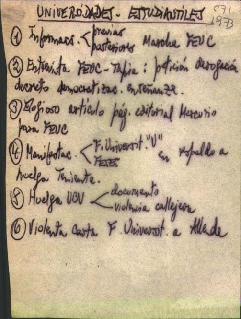 UNIVERSIDADES - ESTUDIANTILES
1973
① Informac. previas
posteriores Marcha FEUC
② Entrevista FEUC - Tapia: petición derogación
decreto democratizac. enseñanza.
③ Elogioso artículo pág. editorial Mercurio
para FEUC
④ Manifestac. F. Universit. "U"
FESES en respaldo a
huelga Teniente.
⑤ Huelga UCV documento
violencia callejera
⑥ Violenta carta F. Universit. a Allende